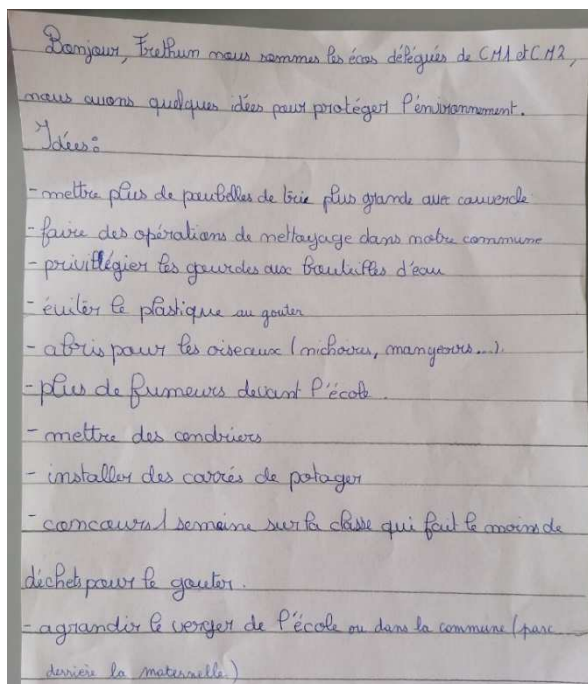 Bonjour, Frethun nous sommes les écos délégués de CM1 et CM2,
nous avons quelques idées pour protéger l'environnement.
Idées:
- mettre plus de poubelles de trie plus grande avec couvercle
- faire des opérations de nettoyage dans notre commune
- privillégier les gourdes aux bouteilles d'eau
- éviter le plastique au gouter
- abris pour les oiseaux (nichoires, mangeoirs...).
- plus de fumeurs devant l'école.
- mettre des cendriers
- installer des carrés de potager
- concours 1 semaine sur la classe qui fait le moins de
déchets pour le gouter.
- agrandir le verger de l'école ou dans la commune (parc
derrière la maternelle)